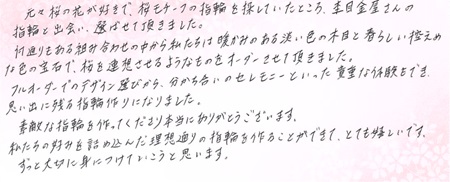 元々桜の花が好きで、桜モチーフの指輪を探していたところ、杢目金屋さんの
指輪と出会い、選ばせて頂きました。
何通りもある組み合わせの中から私たちは暖かみのある淡い色の木目と春らしい控えめ
な色の宝石で、桜を連想させるようなものをオーダーさせて頂きました。
フルオーダーでのデザイン選びから、分かち合いのセレモニーといった貴重な体験もでき、
思い出に残る指輪作りになりました。
素敵な指輪を作ってくださり本当にありがとうございます。
私たちの好みを詰め込んだ理想通りの指輪を作ることができて、とても嬉しいです。
ずっと大切に身につけていこうと思います。